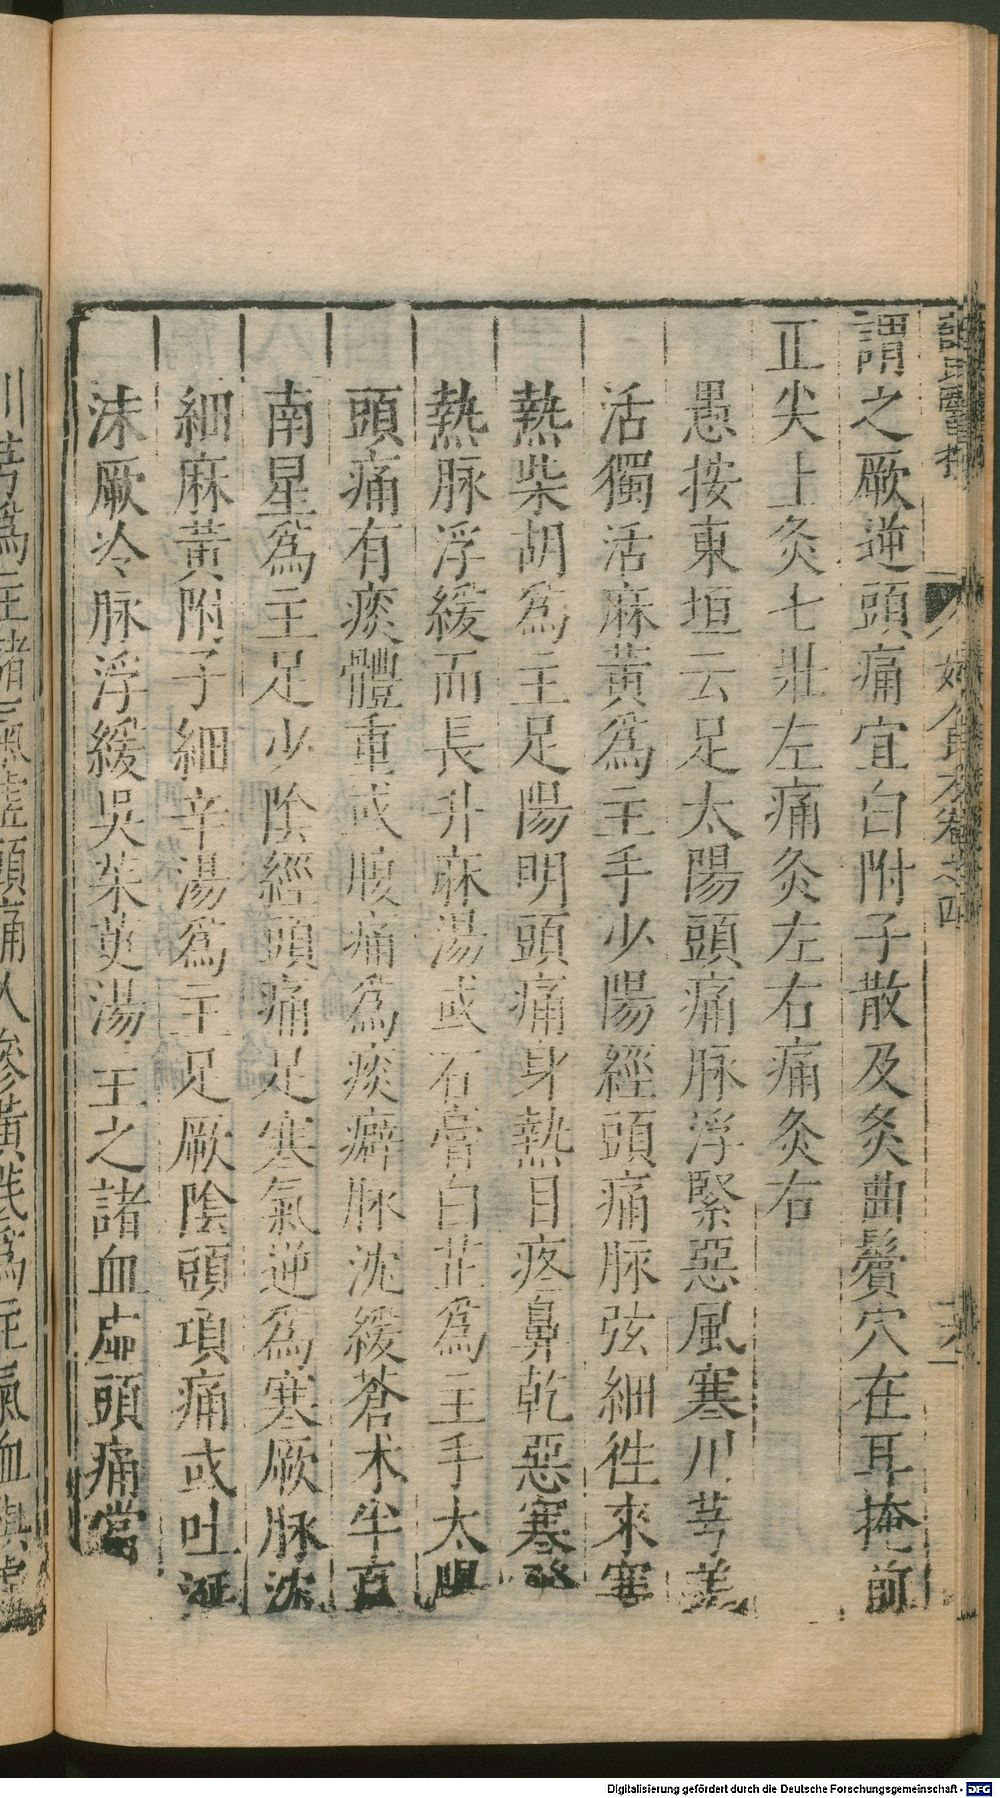 謂之厥逆頭痛宜白附子散及灸曲鬢穴在耳掩前
正尖上灸七壯左痛灸左右痛灸右
愚按東垣云足太陽頭痛脉浮緊惡風寒川芎羌
活獨活麻黃爲主手少陽經頭痛脉弦細徃來寒
熱柴胡爲主足陽明頭痛身熱目疼鼻乾惡寒發
熱脉浮緩而長升麻湯或石膏白芷爲主手太陰
頭痛有痰體重或腹痛爲痰癖脉沈緩蒼术半夏
南星爲主足少陰經頭痛足寒氣逆爲寒厥脉沈
細麻黃附子細辛湯爲主足厥陰頭項痛或吐涎
沫厥冷脉浮緩吳茱萸湯主之諸血虛頭痛當
川芎爲主諸氣虛頭痛人參黃芪爲主氣血俱虛
Digitalisierung gefördert durch die Deutsche Forschungsgemeinschaft - DFG